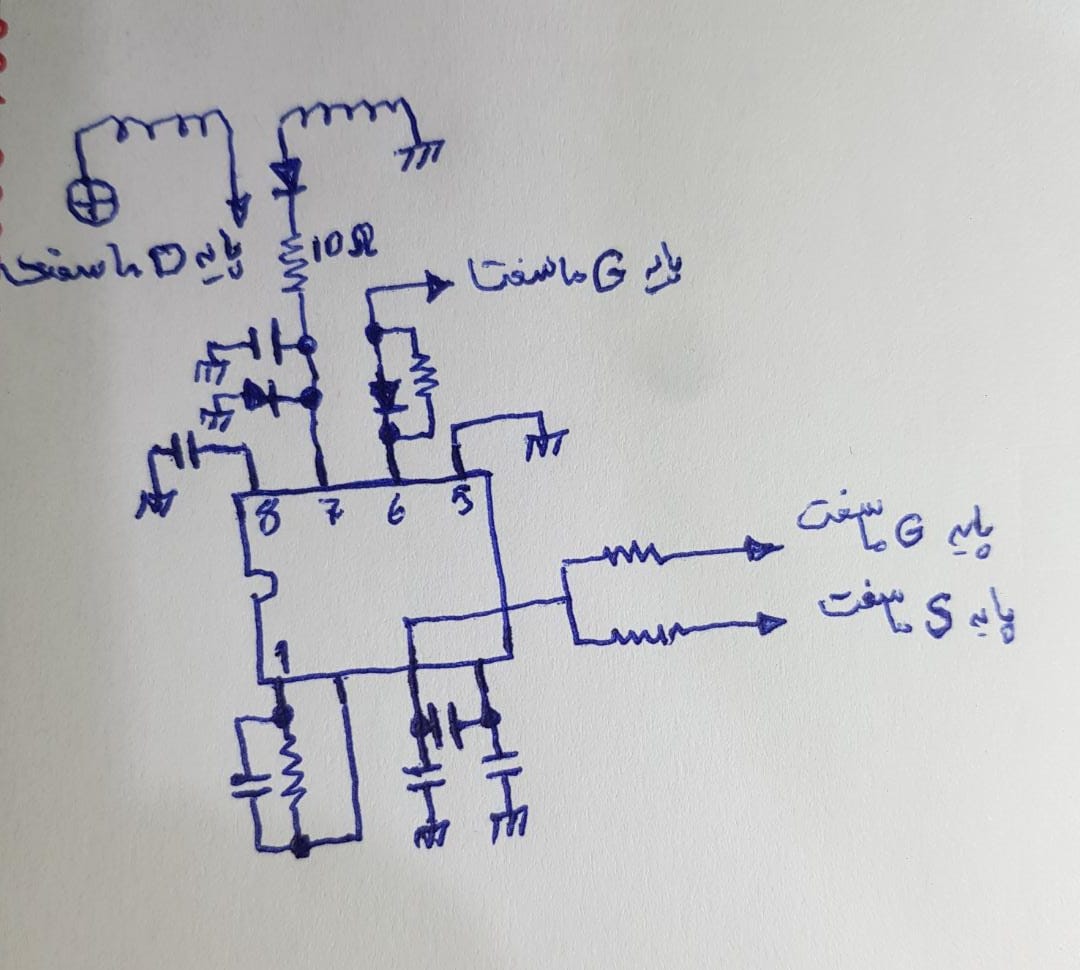 10Ω
پایه D ماسفت
پایه G ماسفت
8 7 6 5
پایه G ماسفت
پایه S ماسفت
1